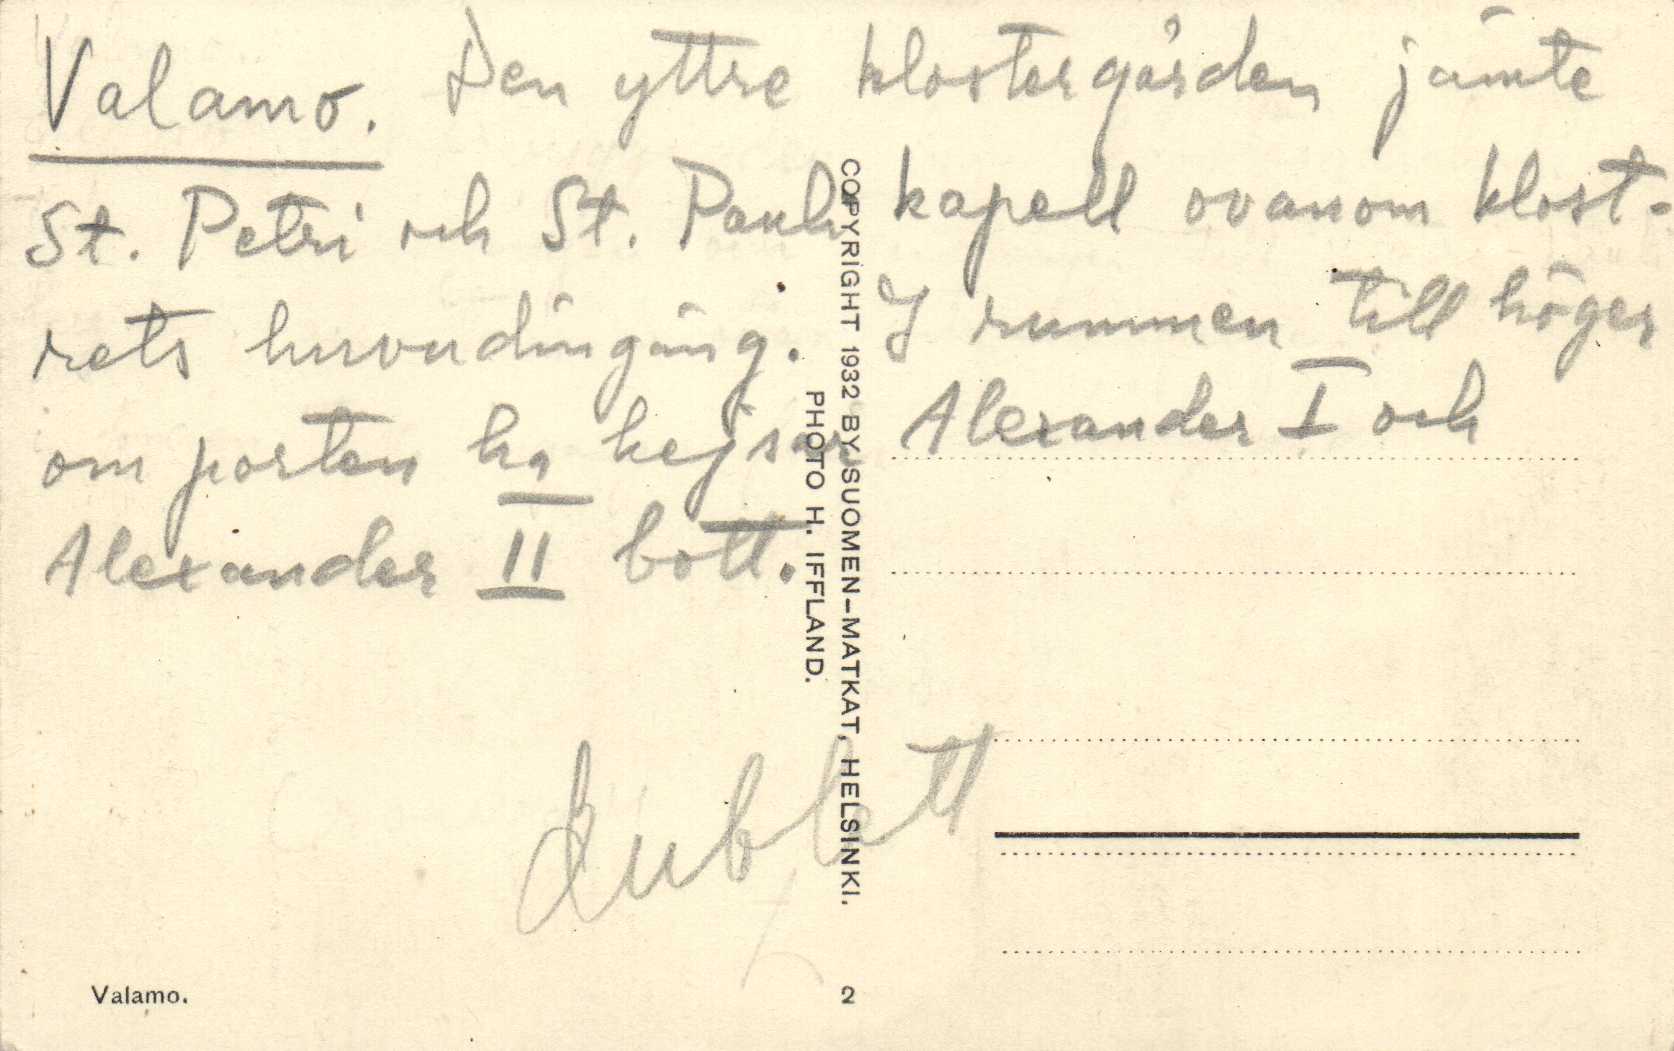 Valamo. Den yttre klostergården jämte
St. Petri och St. Pauli kapell ovanom klost-
rets huvudingång. I rummen till höger
om porten ha kejsar Alexander I och
Alexander II bott.
Dublett
COPYRIGHT 1932 BY SUOMEN-MATKAT, HELSINKI.
PHOTO H. IFFLAND.
Valamo.
2